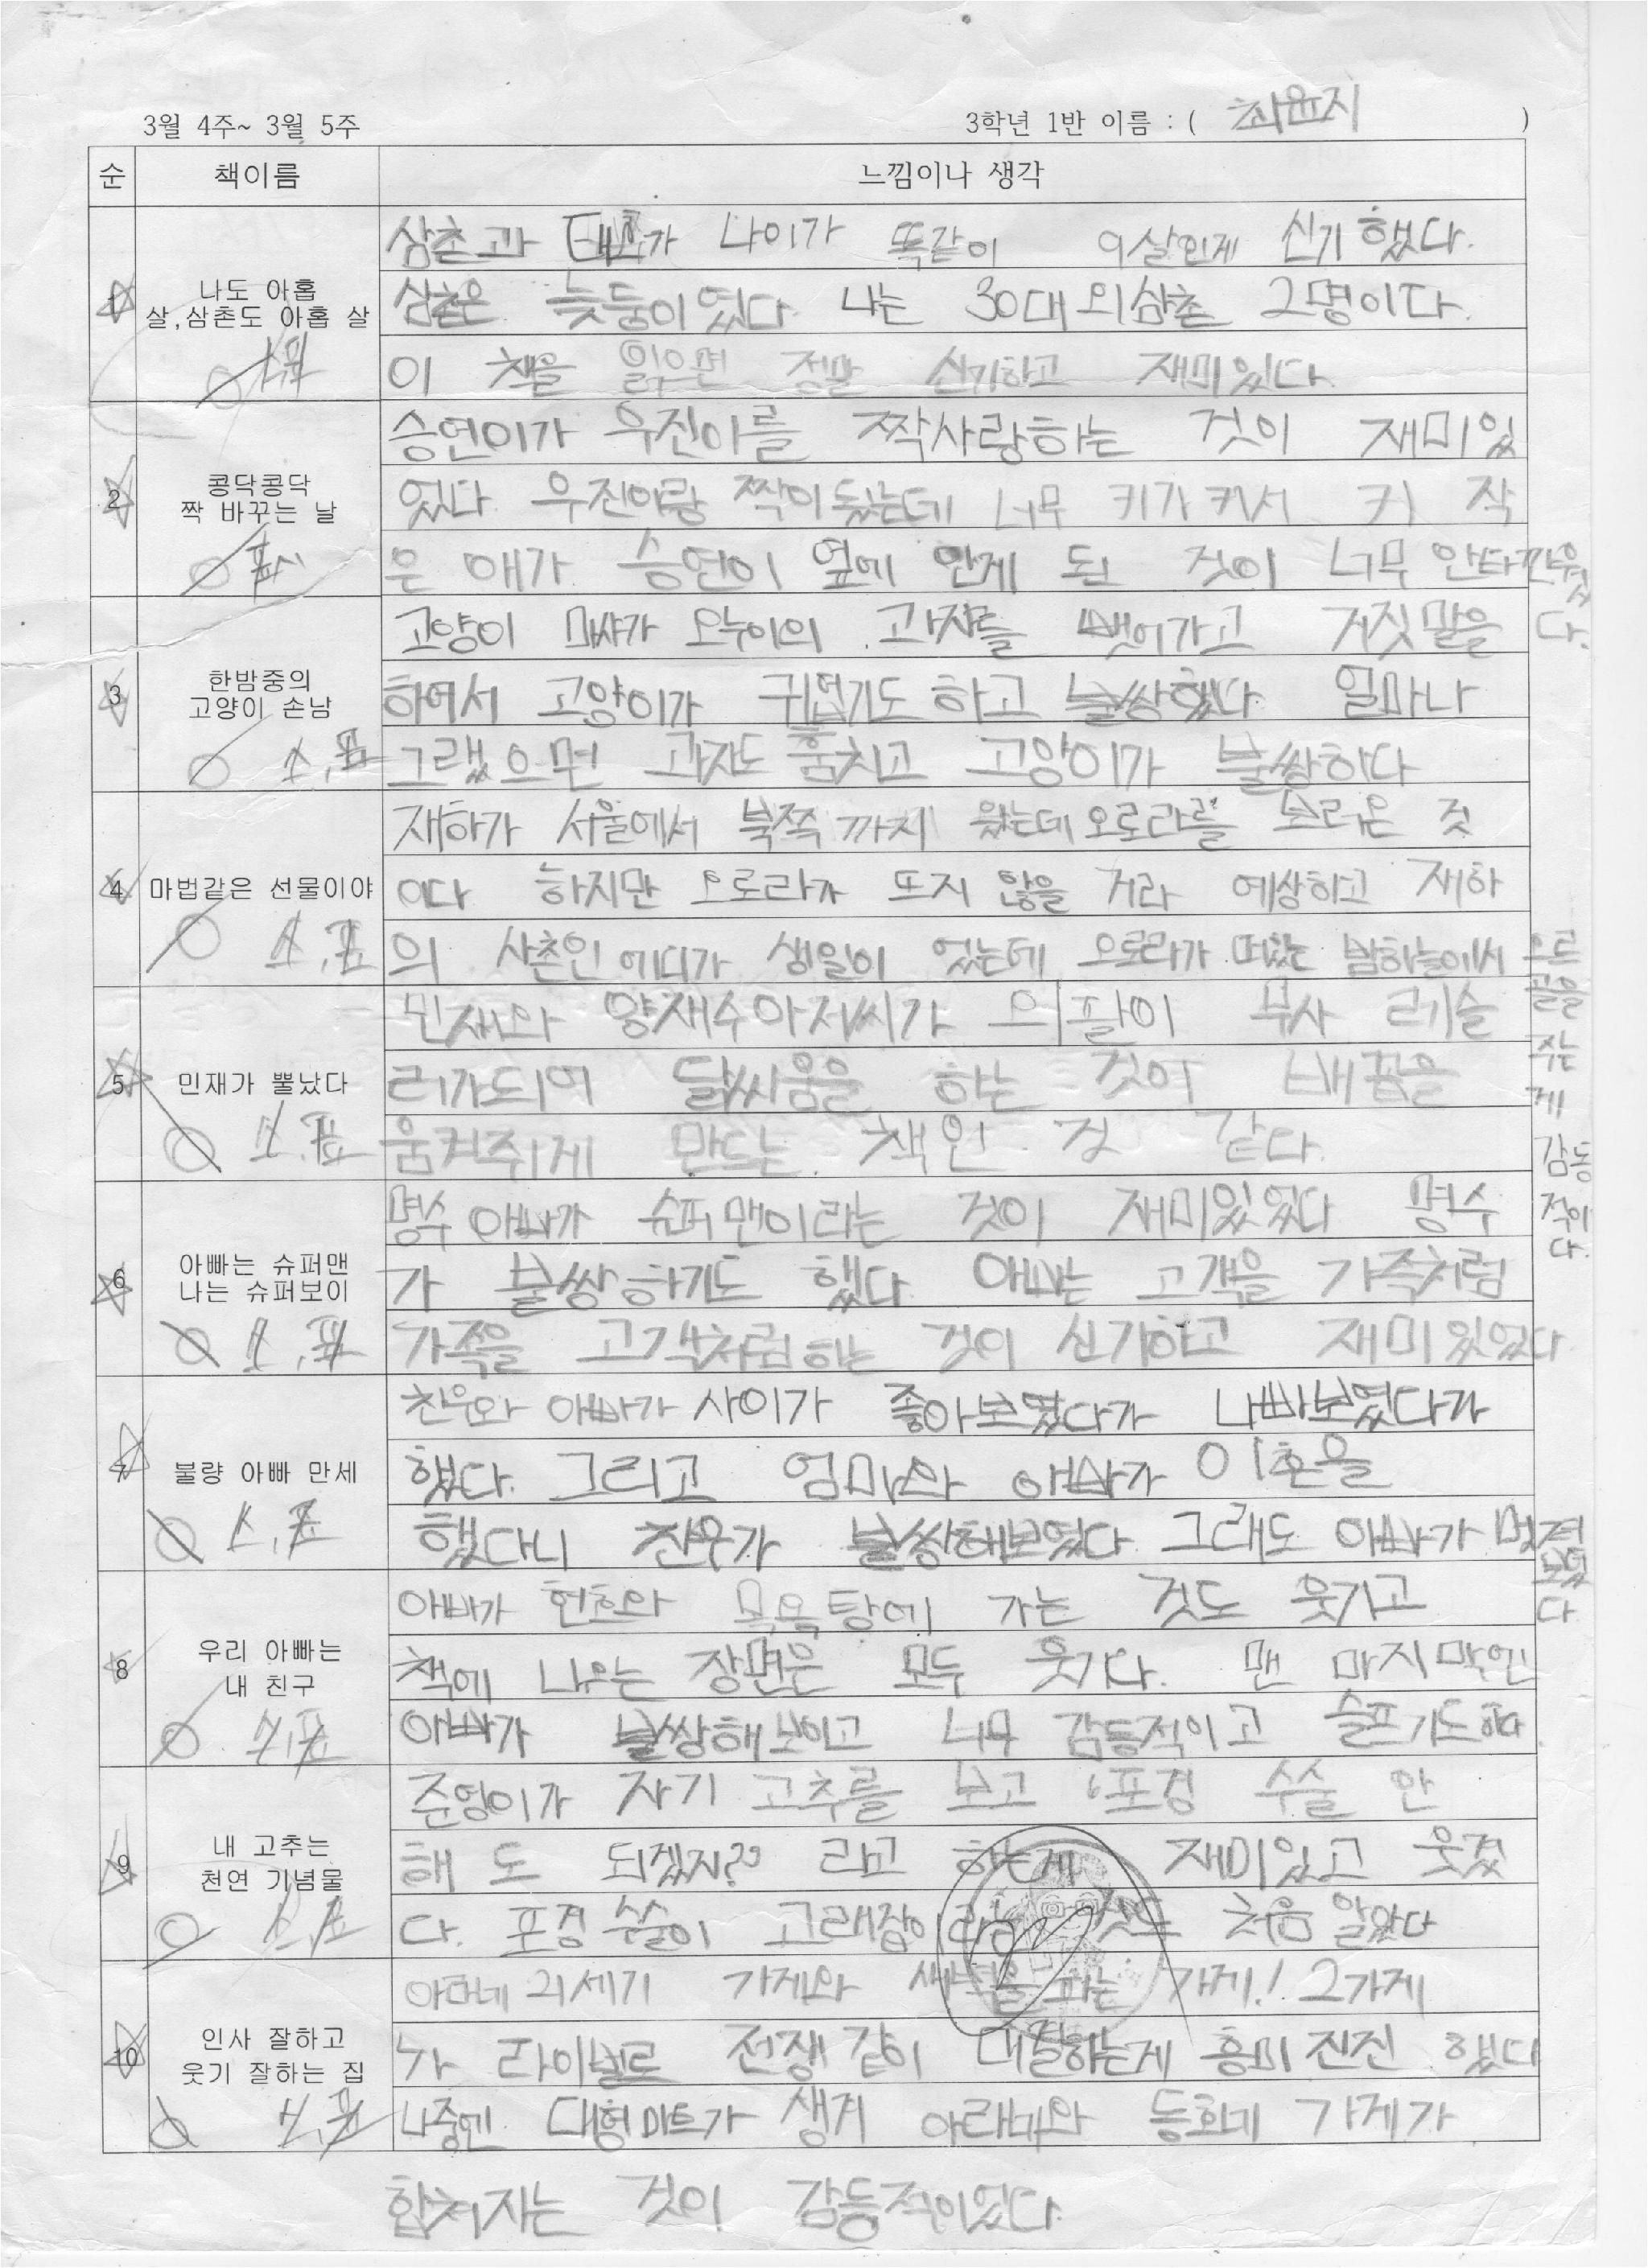 3월 4주~ 3월 5주
3학년 1반 이름 : ( 최윤지 )
순
책이름
느낌이나 생각
1
나도 아홉
살,삼촌도 아홉 살
삼촌과 가 나이가 똑같이 9살인게 신기했다.
삼촌은 늦둥이였다 나는 30대 외삼촌 2명이다.
이 책을 읽으면 정말 신기하고 재미있다.
2
콩닥콩닥
짝 바꾸는 날
승연이가 우진이를 짝사랑하는 것이 재미있
었다 우진이랑 짝이 됬는데 너무 키가 커서 키 작
은 애가 승연이 옆에 안게 된 것이 너무 안타까웠
다.
3
한밤중의
고양이 손님
고양이 가 오누이의 과자를 뺏어가고 거짓말을
하여서 고양이가 귀엽기도 하고 불쌍했다 얼마나
그랬으면 과자도 훔치고 고양이가 불쌍하다
4
마법같은 선물이야
재하가 서울에서 북쪽까지 왔는데 오로라를 보러온 것
이다 하지만 오로라가 뜨지 않을 거라 예상하고 재하
의 사촌인 에디가 생일이 었는데 오로라가 떠있는 밤하늘에서 오르
골을
주는
게
감동
적이
다.
5
민재가 뿔났다
민재와 양재수아저씨가 외팔이 무사 레슬
러가되어 닭싸움을 하는 것이 배꼽을
움켜쥐게 만드는 책인 것 같다.
6
아빠는 슈퍼맨
나는 슈퍼보이
명수 아빠가 슈퍼맨이라는 것이 재미있었다 명수
가 불쌍하기도 했다 아빠는 고객을 가족처럼
가족을 고객처럼하는 것이 신기하고 재미있었다.
7
불량 아빠 만세
찬우와 아빠가 사이가 좋아보였다가 나빠보였다가
했다. 그리고 엄마와 아빠가 이혼을
했다니 찬우가 불쌍해보였다 그래도 아빠가 멋져
보였
다
8
우리 아빠는
내 친구
아빠가 현호와 목욕탕에 가는 것도 웃기고
책에 나오는 장면은 모두 웃기다. 맨 마지막엔
아빠가 불쌍해보이고 너무 감동적이고 슬프기도하다.
9
내 고추는
천연 기념물
준영이가 자기 고추를 보고 '포경 수술 안
해 도 되겠지?' 라고 하는게 재미있고 웃겼
다. 포경 수술이 고래잡이라는 것도 처음 알았다
10
인사 잘하고
웃기 잘하는 집
아래네 21세기 가게와 새벽을 파는 가게! 2가게
가 라이벌로 전쟁같이 대결하는게 흥미진진 했다
나중엔 대형마트가 생겨 아래네와 동화네 가게가
합쳐지는 것이 감동적이었다.